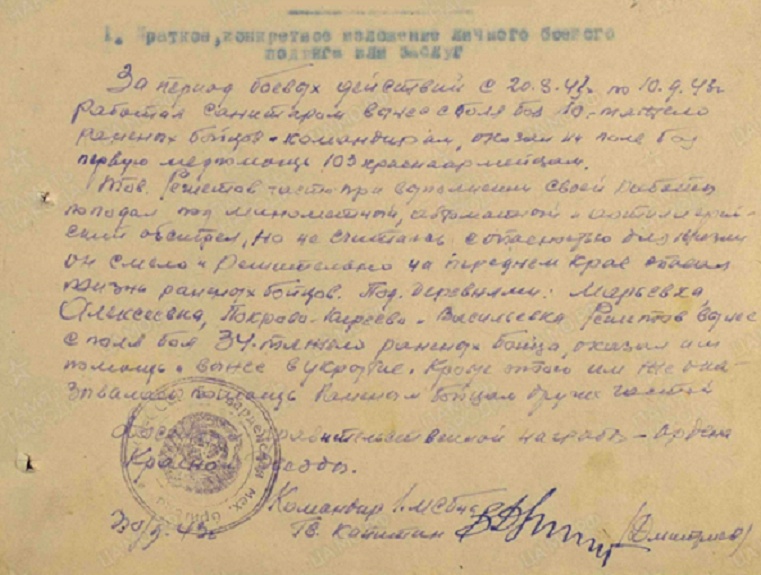 1. Краткое, конкретное изложение личного боевого
подвига или заслуг
За период боевых действий с 20.8.43г по 10.9.43г
Работая санитаром вынес с поля боя 70-тяжело
раненых бойцов-командирам, оказал на поле боя
первую медпомощь 103 красноармейцам.
Тов. Решетов часто при выполнении своей работы
попадал под минометный, автоматной и артиллерий-
ский обстрел, но не считаясь с опасностью для жизни
он смело и решительно на переднем крае спасал
жизнь раненых бойцов. Под деревнями: Марьевка,
Алексеевка, Покрово-Киреево - Васильевка Решетов вынес
с поля боя 34-тяжело раненых бойца, оказал им
помощь и вынес в укрытие. Кроме этого им же ока-
зывалась помощь раненым бойцам других частей
правительственной награды - ордена
Красной Звезды.
Командир 1 мсб
Гв. Капитан (Дмитриев)
43г
Гвардейская мех. бригада